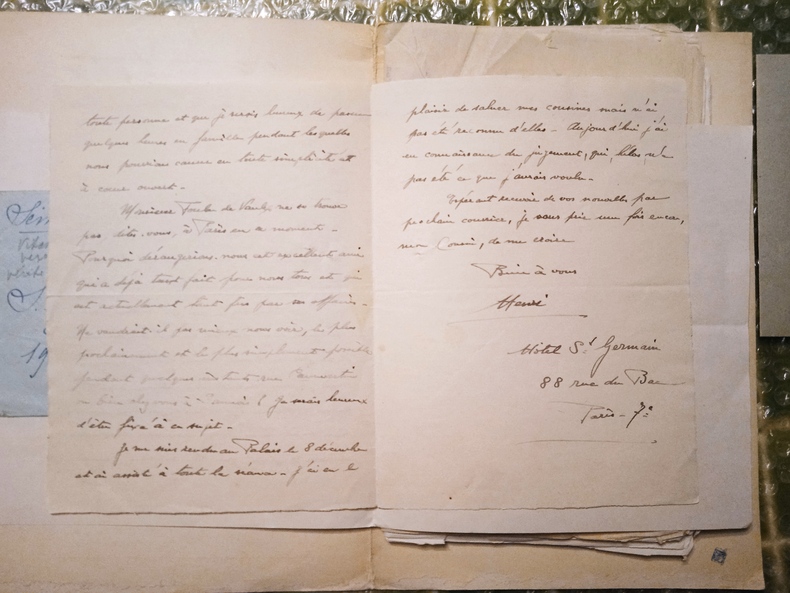 toute personne et que je serais heureux de passer
quelques heures en famille pendant lesquelles
nous pourrions causer en toute simplicité et
à cœur ouvert -
Monsieur de ne se trouve
pas, dites-vous, à Paris en ce moment -
Pourquoi dérangerions-nous cet excellent ami
qui a déjà tant fait pour nous tous et qui
est actuellement tout pris par ses affaires -
Ne vaudrait-il pas mieux nous voir, le plus
prochainement et le plus simplement possible
pendant quelques instants
ou bien chez vous à ? Je serais heureux
d'être fixé à ce sujet -
Je me suis rendu au Palais le 8 décembre
et ai assisté à toute la séance - J'ai eu le
plaisir de saluer mes cousines mais n'ai
pas été reconnu d'elles - Aujourd'hui j'ai
eu connaissance du jugement, qui, hélas n'a
pas été ce que j'aurais voulu -
Espérant recevoir de vos nouvelles par
prochain courrier, je vous prie une fois encore,
mon Cousin, de me croire
Bien à vous
Henri
Hôtel St Germain
88 rue du Bac
Paris - 7e
19